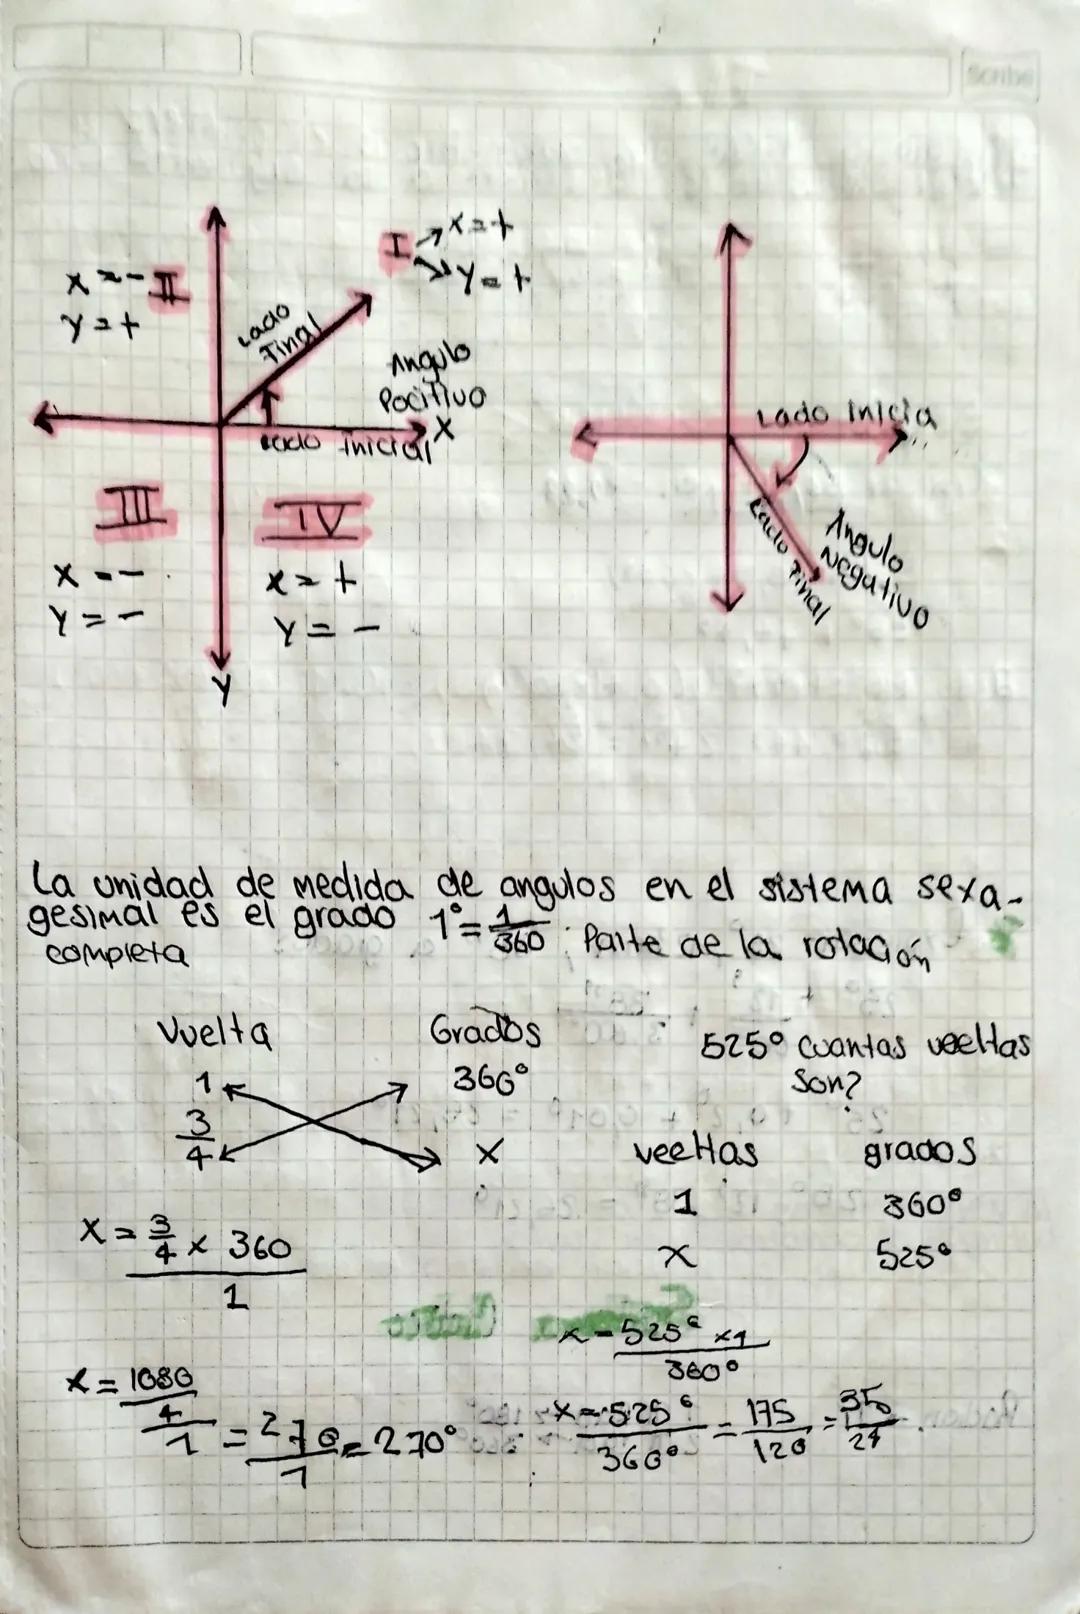 Scribe
I → x = +
→ y = +
x = - II
y = +
Lado
Final
Angulo
Pocitivo
x
Lado inicial
III
x = -
y = -
IV
x = +
y = -
y
Lado inicia
Lado Final
Angulo
Negativo
La unidad de medida de angulos en el sistema sexa-
gesimal es el grado 1° = 1/360 ; Parte de la rotación
completa
Vuelta Grados
1 360°
3/4 x
x = 3/4 x 360
1
x = 1080
4
1 = 270/1 = 270°
525° cuantas veeltas
son?
veeltas grados
1 360°
x 525°
x = 525° x1
360°
x = 525°/360° = 175/120 = 35/24